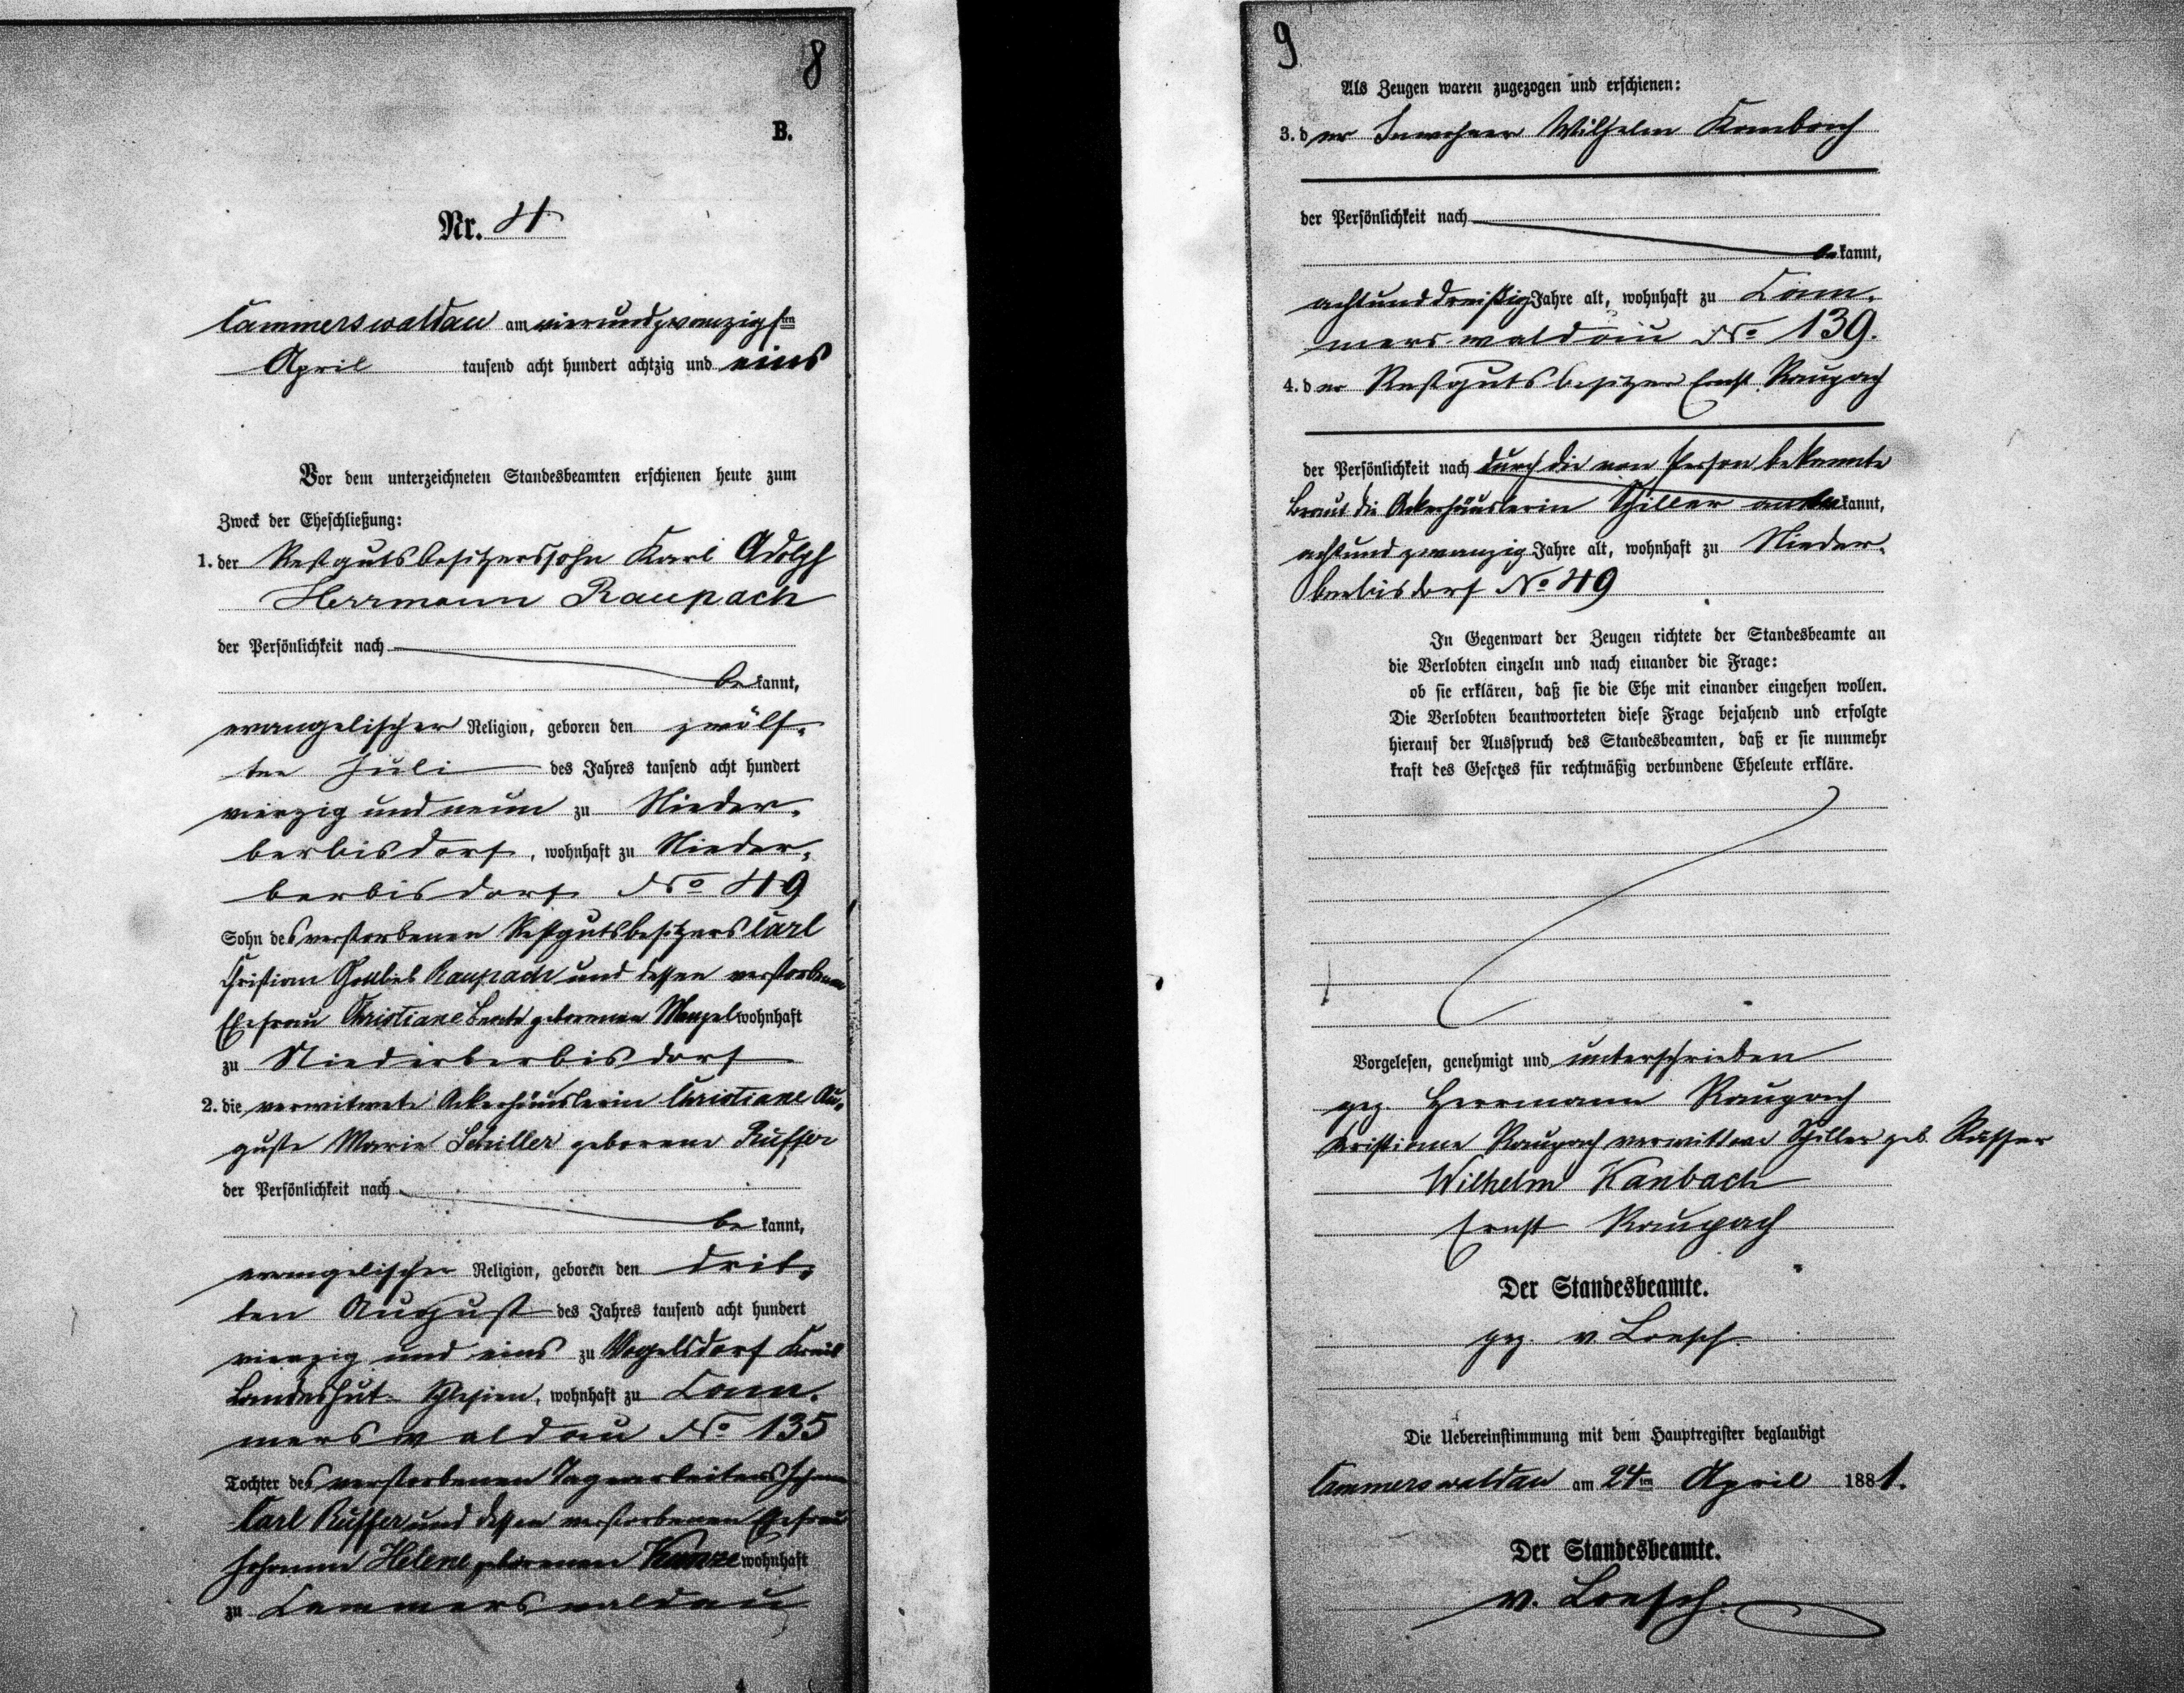 8
B.
Nr. 4
Cammerswaldau am vierundzwanzigsten
April tausend acht hundert achtzig und eins
Vor dem unterzeichneten Standesbeamten erschienen heute zum
Zweck der Eheschließung:
1. der Restgutsbesitzerssohn Karl Adolph
Herrmann Raupach
der Persönlichkeit nach
bekannt,
evangelischer Religion, geboren den zwölf-
ten Juli des Jahres tausend acht hundert
vierzig und neun zu Nieder-
berbisdorf, wohnhaft zu Nieder-
berbisdorf No 49
Sohn des verstorbenen Restgutsbesitzers Carl
Christian Gottlieb Raupach und dessen verstorbenen
Ehefrau Christiane Beate geborenen Menzel wohnhaft
zu Niederberbisdorf
2. die verwitwete Ackerhäuslerin Christiane Au-
guste Marie Schiller geborene Ruffer
der Persönlichkeit nach
bekannt,
evangelischer Religion, geboren den drit-
ten August des Jahres tausend acht hundert
vierzig und eins zu Vogelsdorf Kreis
Landeshut Schlesien, wohnhaft zu Cam-
merswaldau No 135
Tochter des verstorbenen Tagearbeiters Johann
Carl Ruffer und dessen verstorbenen Ehefrau
Johanne Helene geborenen Kunze wohnhaft
zu Cammerswaldau
9
Als Zeugen waren zugezogen und erschienen:
3. der Inwohner Wilhelm Kambach
der Persönlichkeit nach
bekannt,
achtunddreißig Jahre alt, wohnhaft zu Cam-
merswaldau No 139.
4. der Restgutsbesitzer Ernst Raupach
der Persönlichkeit nach durch die von Person bekannte
Braut die Ackerhäuslerin Schiller anerkannt,
achtundzwanzig Jahre alt, wohnhaft zu Nieder-
berbisdorf No 49
In Gegenwart der Zeugen richtete der Standesbeamte an
die Verlobten einzeln und nach einander die Frage:
ob sie erklären, daß sie die Ehe mit einander eingehen wollen.
Die Verlobten beantworteten diese Frage bejahend und erfolgte
hierauf der Ausspruch des Standesbeamten, daß er sie nunmehr
kraft des Gesetzes für rechtmäßig verbundene Eheleute erkläre.
Vorgelesen, genehmigt und unterschrieben
gez. Herrmann Raupach
Kristiane Raupach verwittwe Schiller geb. Ruffer
Wilhelm Kanbach
Ernst Raupach
Der Standesbeamte.
gez. v Loesch
Die Uebereinstimmung mit dem Hauptregister beglaubigt
Cammerswaldau am 24ten April 1881.
Der Standesbeamte.
v. Loesch.